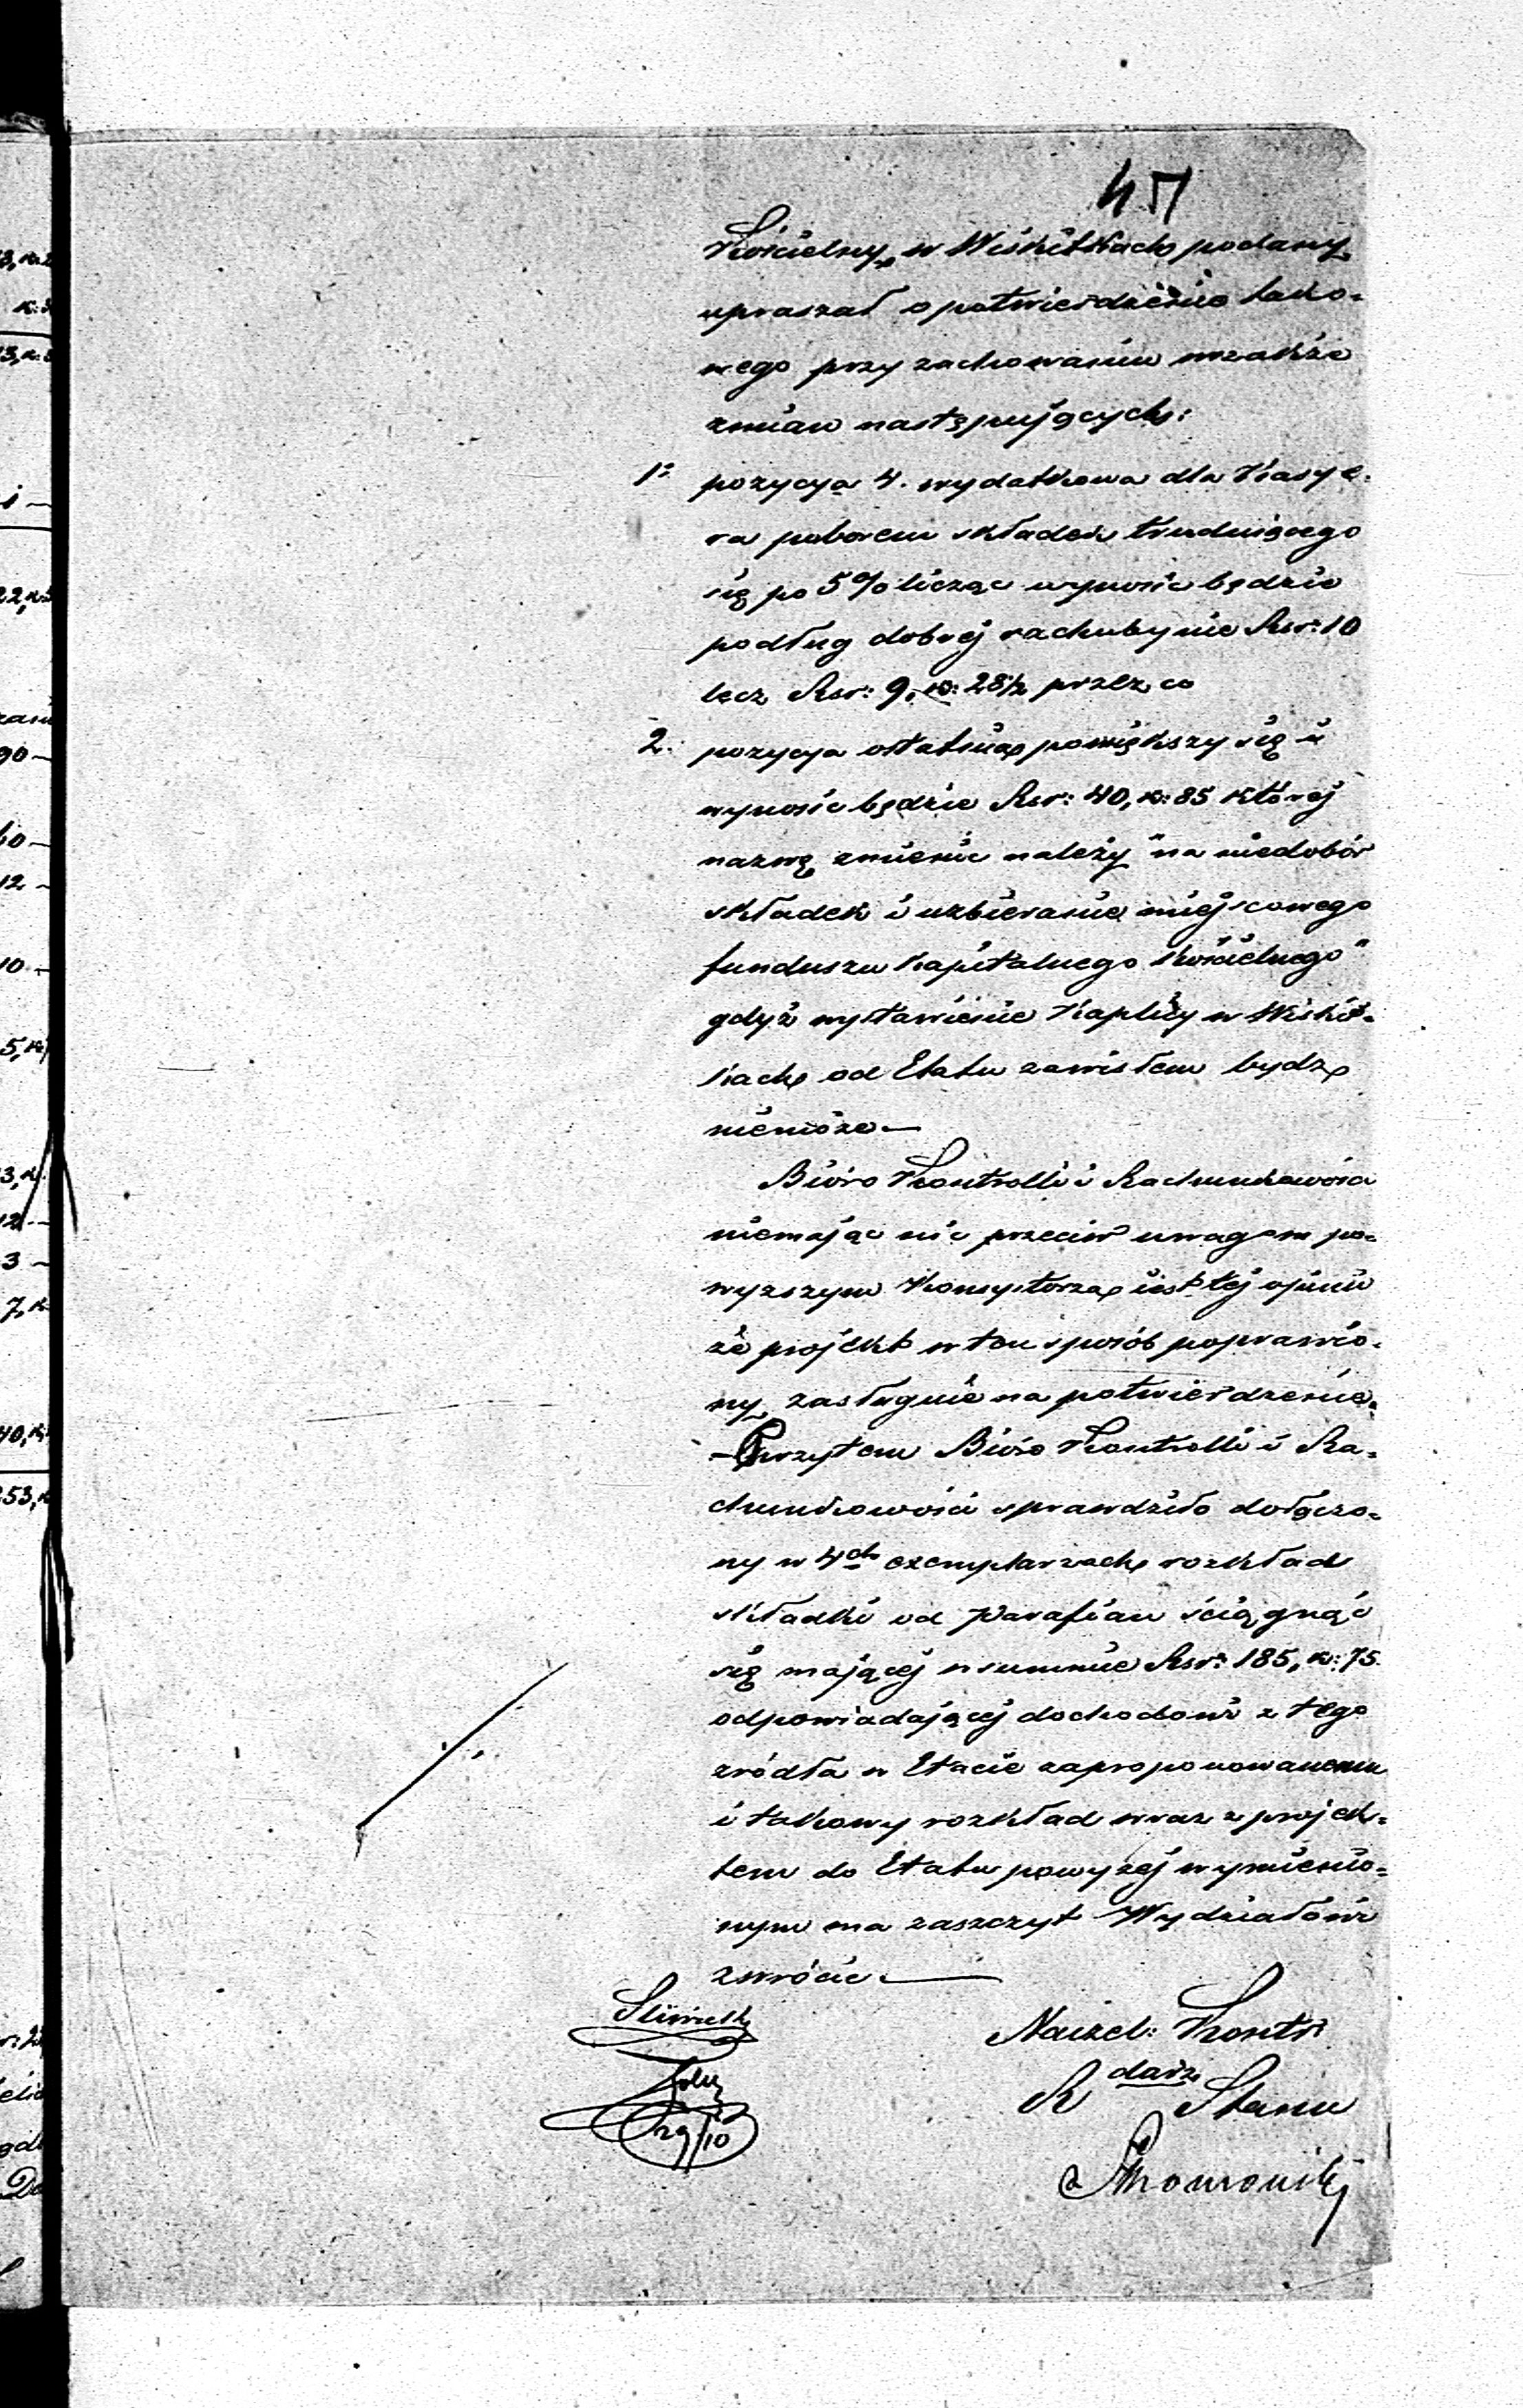 47
Kościelny w Wiskitkach podany
upraszał o potwierdzenie tako-
wego przy zachowaniu wszakże
zmian następujących:
1° pozycya 4. wydatkowa dla Kasye-
ra poborem składek trudniącego
się po 5% licząc wynosić będzie
podług dobrej rachuby nie Rsr: 10
lecz Rsr: 9, k: 28½ przez co
2. pozycya ostatnia powiększy się i
wynosić będzie Rsr: 40, k: 85 której
nazwę zmienić należy "na niedobór
składek i uzbieranie miejscowego
funduszu kapitalnego kościelnego"
gdyż wystawienie Kaplicy w Wiskit-
kach od Etatu zawisłem bydź
niemoże.—
Bióro Kontrolli i Rachunkowości
niemając nic przeciw uwagom po-
wyższym Konsystorza jest tej opinii
że projekt w ten sposób poprawio-
ny, zasługuie na potwierdzenie.
—Przytem Bióro Kontrolli i Ra-
chunkowości sprawdziło dołączo-
ny w 4ch exemplarzach rozkład
składki od Parafian ściągnąć
się mającej w summie Rsr: 185, k: 75.
odpowiadającej dochodowi z tego
zródła w Etacie zaproponowanemu
i takowy rozkład wraz z projek-
tem do Etatu powyżej wymienio-
nym ma zaszczyt Wydziałowi
zwrócić.—
Naczel: Kontr:
R darz Stanu
29/10